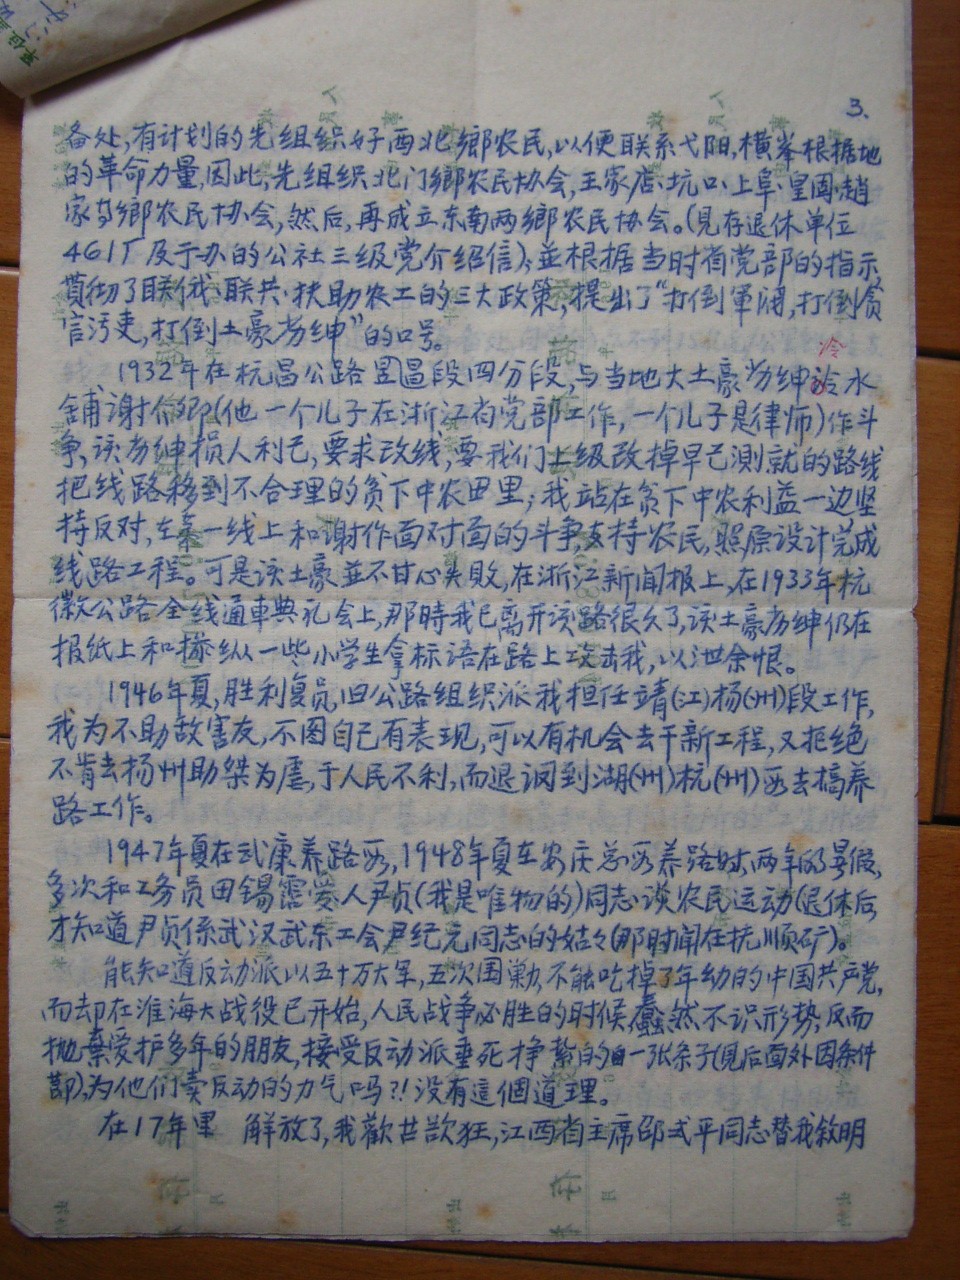 3.
备处,有计划的先组织好西北鄉农民,以便联系弋阳,横峯根据地
的革命力量,因此,先组织北门鄉农民协会,王家店·坑口·上阜·皇固·趙
家等鄉农民协会,然后,再成立东南两鄉农民协会。(见存退休单位
461厂及于办的公社三级党介绍信);並根据当时省党部的指示
貫彻了联俄·联共·扶助农工的三大政策,提出了“打倒軍阀,打倒贪
官污吏,打倒土豪劣绅”的口号。
1932年在杭昌公路昱昌段四分段,与当地大土豪劣绅冷水
冷
铺谢 卿(他一个儿子在浙江省党部工作,一个儿子是律师)作斗
争,该劣绅损人利己,要求改线,要我们上级改掉早已测就的路线
把线路移到不合理的贫下中农田里;我站在贫下中农利益一边坚
持反对,在第一线上和谢作面对面的斗争,支持农民,照原设计完成
线路工程。可是该土豪並不甘心失败,在浙江新闻报上,在1933年杭
徽公路全线通車典礼会上,那時我已离开该路很久了,该土豪劣绅仍在
报纸上和操纵一些小学生拿标语在路上攻击我,以泄余恨。
1946年夏,胜利复员,旧公路组织派我担任靖(江)杨(州)段工作,
我为不助敌害友,不图自己有表现,可以有机会去干新工程,又拒绝
不肯去杨州助桀为虐,于人民不利,而退调到湖(州)杭(州)段去搞养
路工作。
1947年夏在武康养路段,1948年夏在安庆总段养路时,两年的暑假,
多次和工务员田锡霑爱人尹贞(我是唯物的)同志谈农民运动(退休后
才知道尹贞係武汉武东工会尹纪元同志的姑々(那时闻在抚顺矿)。
能知道反动派以五十万大军,五次围剿,不能吃掉了年幼的中国共产党,
而却在淮海大战役已开始,人民战争必胜的时候蠢然不识形势,反而
抛棄爱护多年的朋友,接受反动派垂死挣紥的一张条子(见后面外因条件
节),为他们卖反动的力气吗?!没有這個道理。
在17年里 解放了,我歡甚欲狂,江西省主席邵式平同志替我敘明